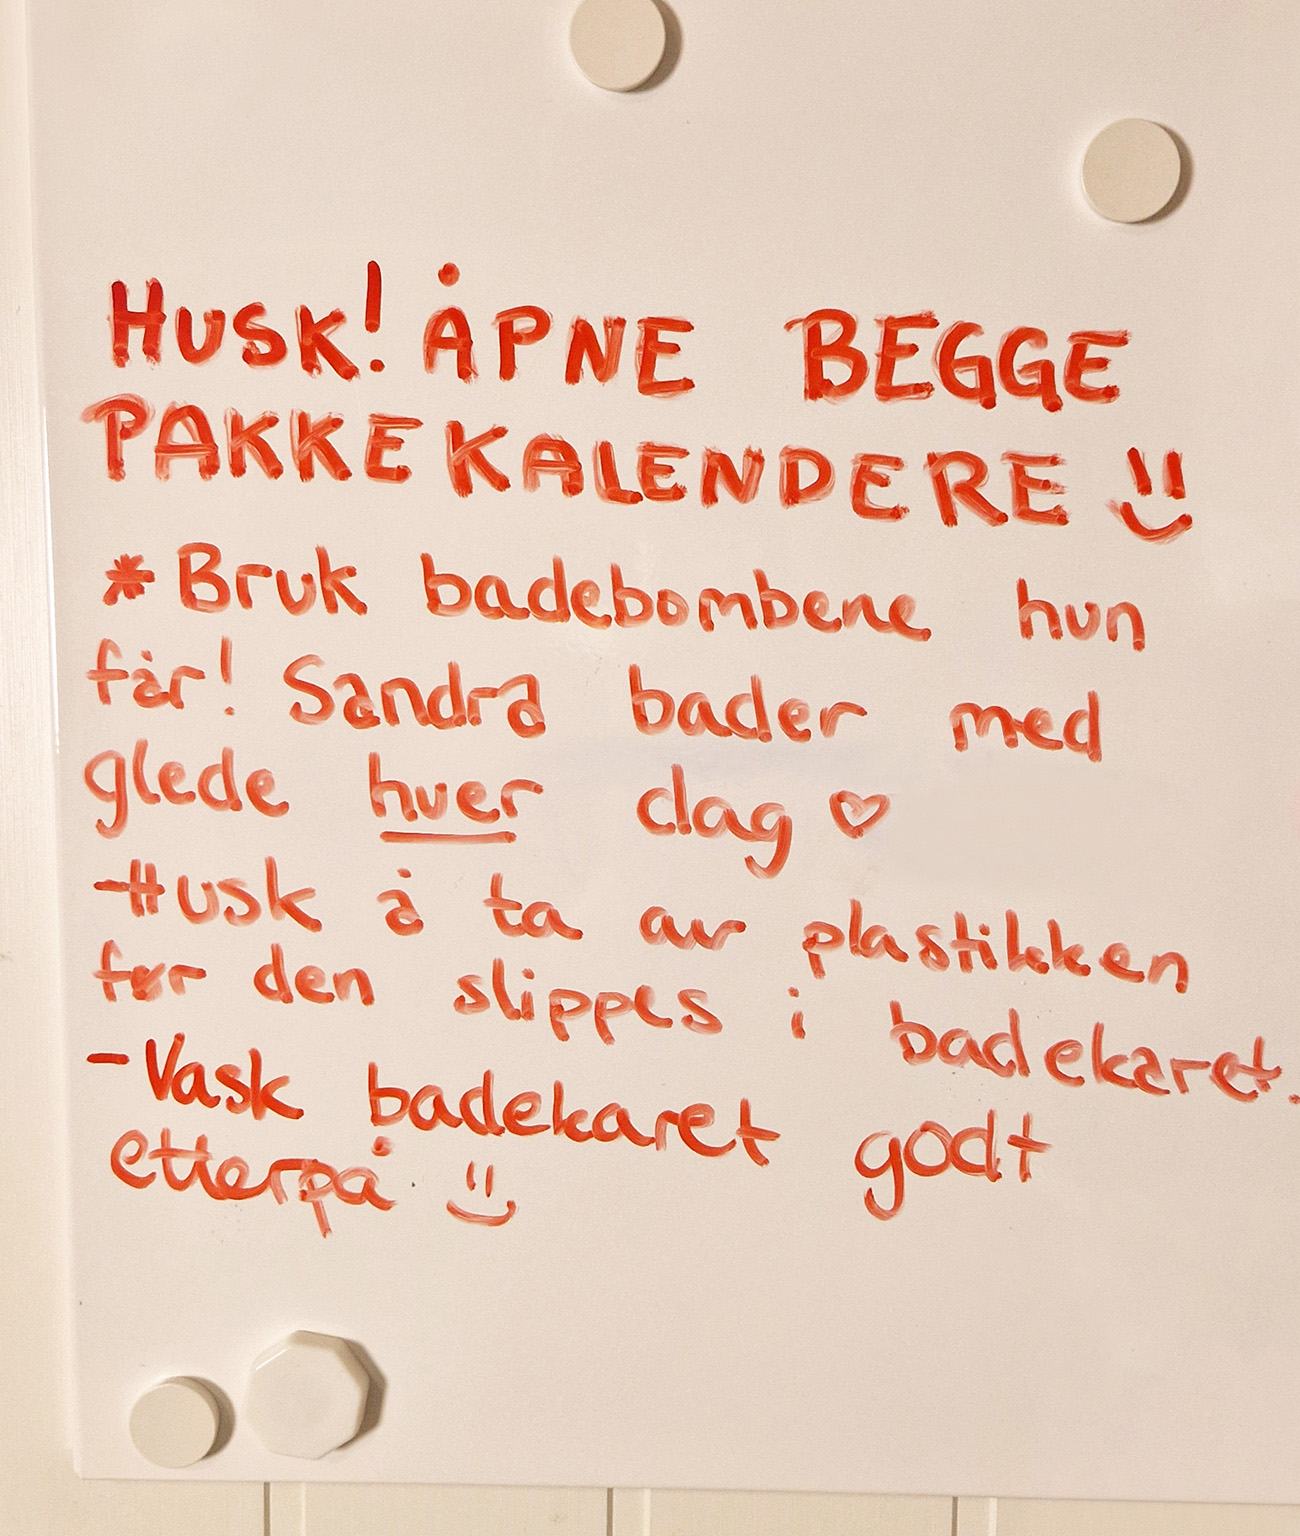 HUSK! ÅPNE BEGGE
PAKKEKALENDERE
* Bruk badebombene hun
får! Sandra bader med
glede hver dag ♡
-Husk å ta av plastikken
før den slippes i badekaret.
- Vask badekaret godt
etterpå